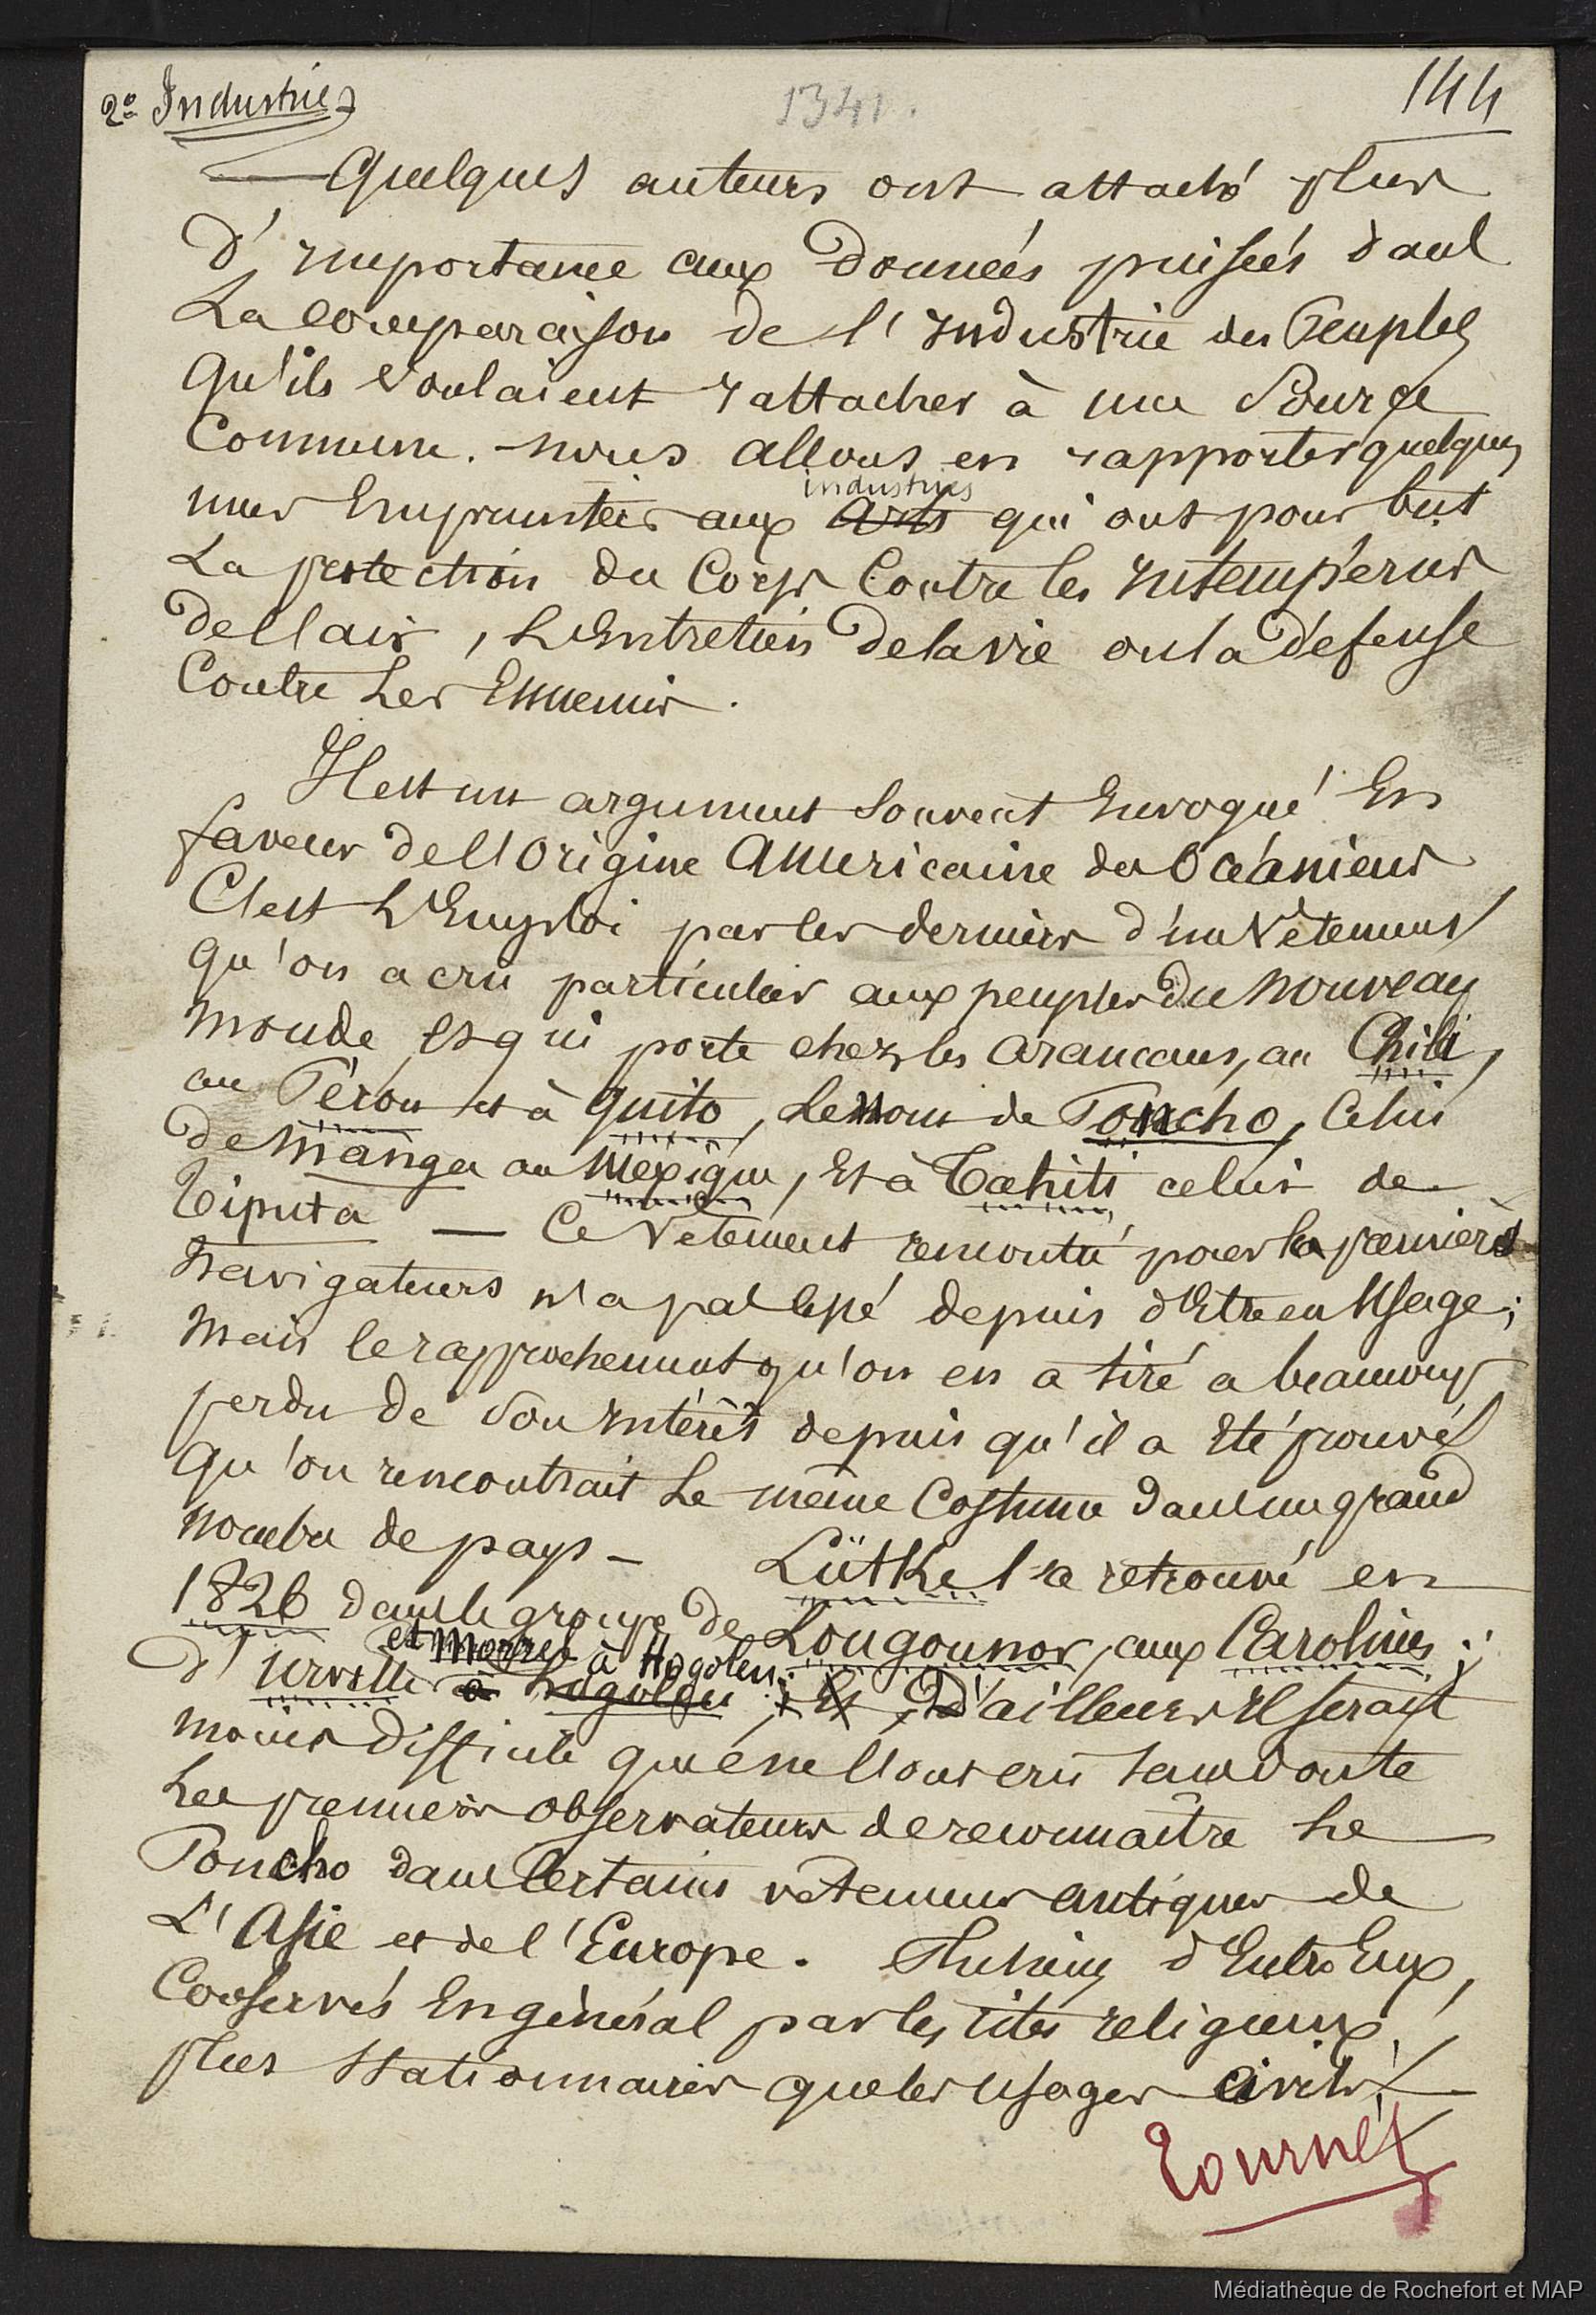 2° Industries
1341.
144
— Quelques auteurs ont attaché plus
d'importance aux données puisées dans
La comparaison de l'industrie des Peuples
qu'ils voulaient rattacher à une Source
Commune. nous allons en rapporter quelques
unes Empruntées aux Arts industries qui ont pour but
La protection du Corps Contre les intempéries
de l'air, L'Entretien de la vie ou la défense
Contre Les Ennemis.
Il est un argument souvent Invoqué En
faveur de l'Origine Américaine des Océaniens
C'est L'Emploi par les derniers d'un Vêtement
qu'on a cru particulier aux peuples du nouveau
monde et qui porte chez les araucans, au Chili,
au Pérou et à Quito, Le nom de Poncho, Celui
de Manga au Mexique, Et à Tahiti celui de
Tiputa — Ce Vêtement rencontré par les premiers
Navigateurs n'a pas cessé depuis d'Etre en Usage;
Mais le rapprochement qu'on en a tiré a beaucoup
perdu de Son intérêt depuis qu'il a Eté prouvé
qu'on rencontrait Le même Costume dans un grand
nombre de pays — Lütke l'a retrouvé en
1826 dans le groupe de Lougounor, aux Carolines;
et Morrel à Hogoleu;
d'Urville à Hogoleu; Et, D'ailleurs Il serait
moins difficile que ne l'ont cru sans doute
Les premiers Observateurs de reconnaître Le
Poncho dans Certains vêtements antiques de
L'Asie et de l'Europe. Plusieurs d'Entre Eux,
Conservés En général par les rites religieux,
plus Stationnaires que les usages civils
Tournez
Médiathèque de Rochefort et MAP